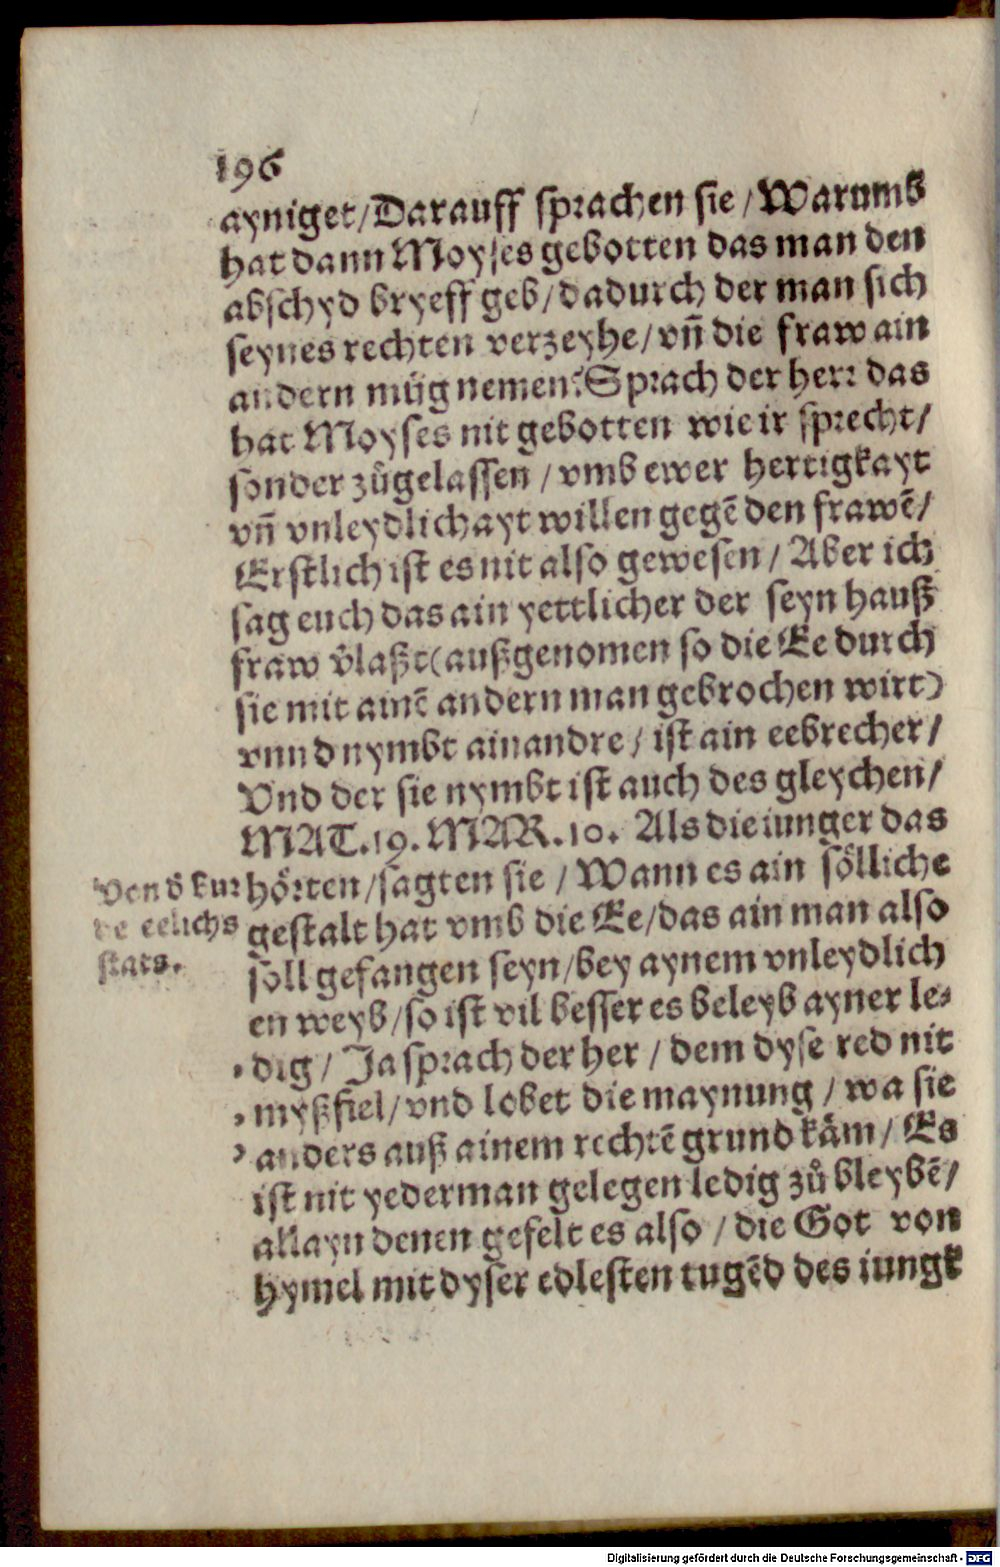 196
ayniget/Darauff sprachen sie/Warumb
hat dann Moyses gebotten das man den
abschyd bryeff geb/dadurch der man sich
seynes rechten verzeyhe/vñ die fraw ain
andern müg nemen? Sprach der herr das
hat Moyses nit gebotten wie ir sprecht/
sonder zůgelassen/vmb ewer hertigkayt
vñ vnleydlichayt willen gegẽ den frawẽ/
Erstlich ist es nit also gewesen/Aber ich
sag euch das ain yettlicher der seyn hauß
fraw v̈laßt(außgenomen so die Ee durch
sie mit ainẽ andern man gebrochen wirt)
vnnd nymbt ain andre/ist ain eebrecher/
Vnd der sie nymbt ist auch des gleychen/
MAT.19.MAR.10. Als die iunger das
hörten/sagten sie/Wann es ain sölliche
gestalt hat vmb die Ee/das ain man also
soll gefangen seyn/bey aynem vnleydlich
en weyb/so ist vil besser es beleyb ayner le⸗
dig/Ja sprach der her/dem dyse red nit
myßfiel/vnd lobet die maynung/wa sie
anders auß ainem rechtẽ grund käm/Es
ist nit yederman gelegen ledig zů bleybẽ/
allayn denen gefelt es also/die Got von
hymel mit dyser edlesten tugẽd des iungk
Von d̕ kur
de eelichs
stats.
Digitalisierung gefördert durch die Deutsche Forschungsgemeinschaft - DFG